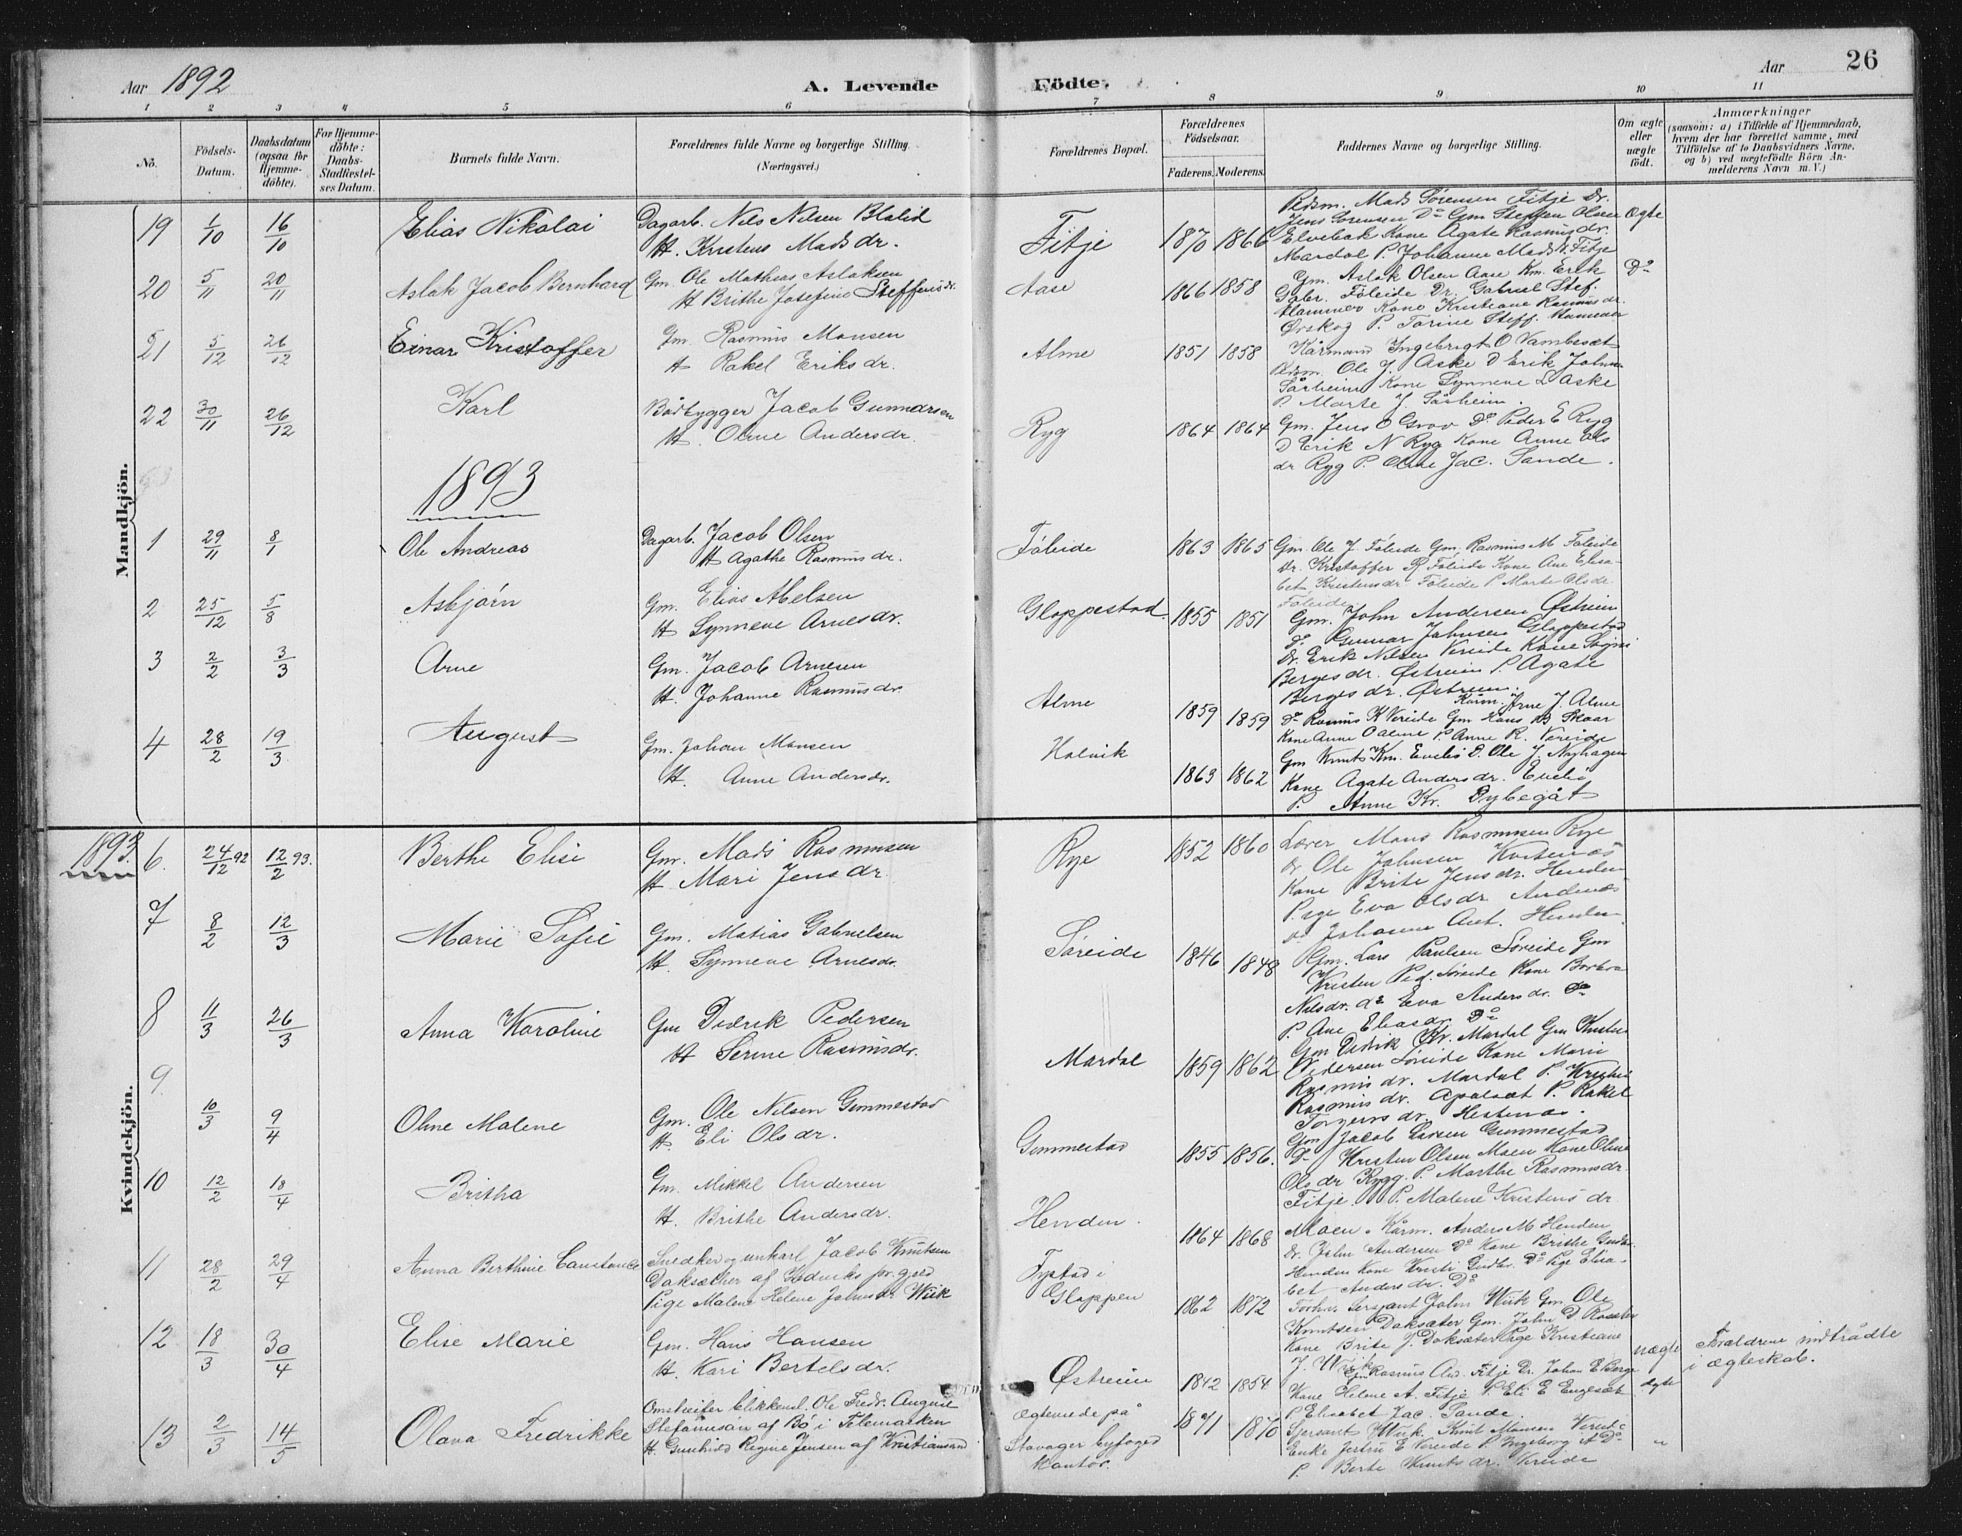 26
Aar 1892
A. Levende Födte.
Aar
1 2 3 4 5 6 7 8 9 10 11
No.
Födsels-Datum.
Daabsdatum (ogsaa for Hjemme-döbte).
For Hjemme-döbte: Daabs-Stadfæstel-ses Datum.
Barnets fulde Navn.
Forældrenes fulde Navne og borgerlige Stilling.
(Næringsvei.)
Forældrenes Bopæl.
Forældrenes Födselsaar.
Faderens. Moderens.
Faddernes Navne og borgerlige Stilling.
Om ægte eller uægte födt.
Anmærkninger
(saasom: a) i Tilfælde af Hjemmedaab,
hvem der har forrettet samme, med
Tilföielse af to Daabsvidners Navne,
og b) ved uægtefödte Börn An-
melderens Navn m. V.)
Mandkjön.
19 1/10 16/10 Elias Nikolai
Dagarb. Nils Nilsen Blalid
H. Kristens Mads dr.
Fitje 1870 1866
Pldsm. Mads Sørensen Fitje Dr.
Jens Sørensen Do Gm Steffen Olsen
Elvebak Kone Agate Rasmusdr.
Mardal P. Johanne Mads Fitje
Ægte
20 5/11 20/11 Aslak Jacob Bernhard
Gm. Ole Mathias Aslaksen
H Brithe Josefine Steffensdr.
Aase 1866 1858
Gm. Aslak Olsen Aase Km. Erik
Gabr. Føleide Dr. Gabriel Stef.
Hammer Kone Kristiane Rasmusdr.
Ørskog P. Torine Steff.
Do
21 5/12 26/12 Einar Kristoffer
Gm. Rasmus Monsen
H Rakel Eriks dr.
Alme 1851 1858
Kårmand Ingebrigt O Vambeset
Pldsm. Ole J. Aske D Erik Johns
Sårheim Kone Synneve D Aske
P. Marte J Sårheim.
22 30/11 26/12 Karl
Bådbygger Jacob Gunnarsen
H. Oline Andersdr.
Ryg 1864 1864
Gm. Jens O Grov Do Peder E Ryg
D Erik N Ryg Kone Anne Ols
dr Ryg P. Oline Jac. Sande.
1893
1 29/11 8/1 Ole Andreas
Dagarb. Jacob Olsen
H Agathe Rasmusdr.
Føleide 1863 1865
Gm. Ole J. Føleide Gm. Rasmus M Føleide
Dr. Kristoffer R Føleide Kone Ane Elisa-
bet Kristensdr Føleide P Marte Olsdr
Føleide
2 25/12 5/8 Asbjørn
Gm. Elias Abelsen
H Synneve Arnesdr.
Gloppestad. 1855 1851
Gm. John Andersen Østrem
Do Gunnar Johnsen Gloppestad
Dr. Erik Nilsen Vereide Kone
Bergesdr. Østrem P. Agate
Bergesdr. Østrem.
3 2/2 3/3 Arne
Gm. Jacob Arnesen
H. Johanne Rasmusdr.
Alme 1859 1859
Kårm. Arne J. Alme
Do Rasmus K Vereide Gm Hans B Skaar
Kone Anne O Alme P Anne R. Vereide
4 28/2 19/3 August
Gm. Johan Monsen
H. Anne Andersdr.
Holvik 1863 1862
Gm Knut Km. Evebø D. Ole J Nyhagen
Kone Agate Andersdr. Evebø
P. Anne Kr. Dybegåt
Kvindekjön.
1893.
6. 24/12 92 12/2 93. Berthe Elise
Gm. Mads Rasmusen
H. Mari Jensdr
Rye 1852 1860
Lærer Mons Rasmusen Rye
Dr. Ole Johnsen
Kone Brite Jensdr. Henden
Pige Eva Olsdr Andenæs
Johanne Ant. Henden
7 8/2 12/3 Marie Sofie
Gm. Matias Gabrielsen
H. Synneve Arnesdr.
Søreide 1846 1848
Gm. Lars Paulsen Søreide Gm
Kristen Ped. Søreide Kone Barbra
Nilsdr. Do Eva Andersdr. Do
P. Ane Eliasdr Do
8 11/3 26/3 Anna Karoline
Gm Didrik Pedersen
H Serine Rasmusdr.
Mardal 1859 1862
Gm Didrik Kr. Mardal Gm Kristen
Pedersen Søreide Kone Marie
Rasmusdr. Mardal P.
Rasmusdr. Apalset P. Rakel
Torgersdr. Hestenæs.
9. 10/3 9/4 Oline Malene
Gm. Ole Nilsen Gimmestad
H Eli Olsdr.
Gimmestad 1855 1856.
Gm Jacob Larsen Gimmestad
Do Kristen Olsen Moen Kone Oline
Olsdr Rygg. P. Marthe Rasmusdr.
Fitje. P. Malene Kristensdr.
10 12/2 18/4 Britha
Gm. Mikkel Andersen
H. Brithe Andersdr.
Henden. 1864 1868
Moen. Kårm. Anders M Henden
Dr. John Andersen Do Kone Brithe
Henden Kone Kristi Do Pige Elisa-
bet Andersdr. Do
11 28/2 29/4 Anna Berthine Constance
Snedker og unkarl Jacob Knutsen
Doksæther af
Pige Malene Helene Johnsdr Wiik
Frystad i
Gloppen 1862 1872
Sersjant John Wiik Gm. Ole
Knutsen Doksæter Gm. John D
Kone Brite J. Doksæter Pige Kristiane
J. Wiik
uægte
Forældrene indtrådte
i ægteskab.
12 18/3 30/4 Elise Marie
Gm. Hans Hansen
H. Kari Bertelsdr.
Østrem 1842 1854
Gm Rasmus And. Fitje Dr. Johan E Berge
Kone Helene A. Fitje P Eli E Engeset
P Elisabet Jac. Sande
ægte
13 2/3 14/5 Olava Fredrikke
Omstreifer blikkensl. Ole Fredr. August
Stefanusøn af Bø i Telemarken
H. Gunhild Regine Jensen af Kristiansand
Ægteviede på
Stavager byfoged
kontor. 1871 1870
Sjersant Wiik Knut Monsen Vereide
Enke Jertru E Vereide P Ingeborg A Do
P. Berte Knutsdr. Vereide
"